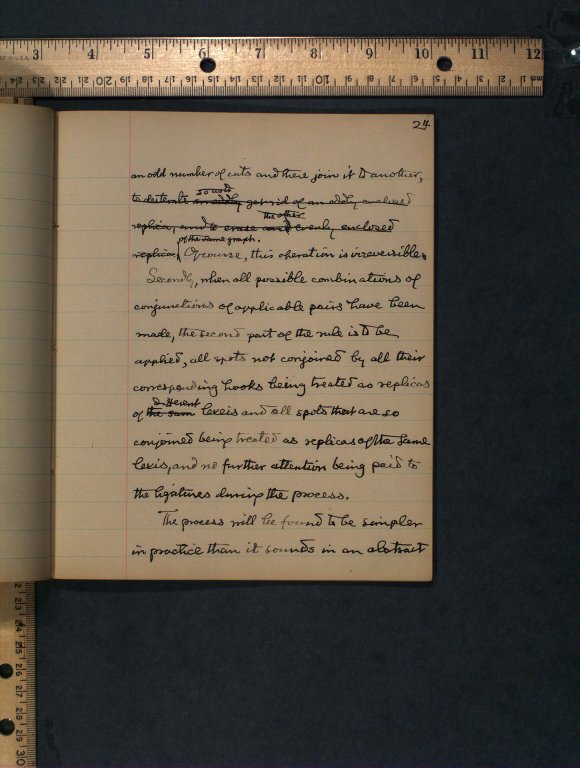 24
an odd number of cuts and there join it to another,
so as to
to obliterate get rid of an oddly enclosed
the other
replica, and to erase and evenly enclosed
of the same graph.
replica. Of course, this operation is irreversible.
Secondly, when all possible combinations of
conjunctions of applicable pairs have been
made, the second part of the rule is to be
applied, all spots not conjoined by all their
corresponding hooks being treated as replicas
different
of the same lexeis and all spots that are so
conjoined being treated as replicas of the same
lexis, and no further attention being paid to
the ligatures during the process.
The process will be found to be simpler
in practice than it sounds in an abstract
3 4 5 6 7 8 9 10 11 12